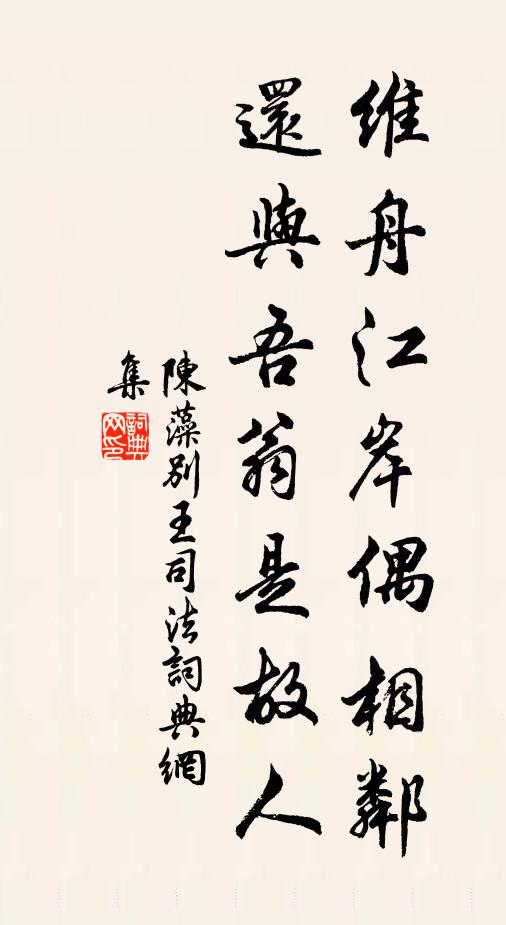 維舟江岸偶相鄰
還與吾翁是故人
陳藻別王司法詞典網
集
詞典
網印